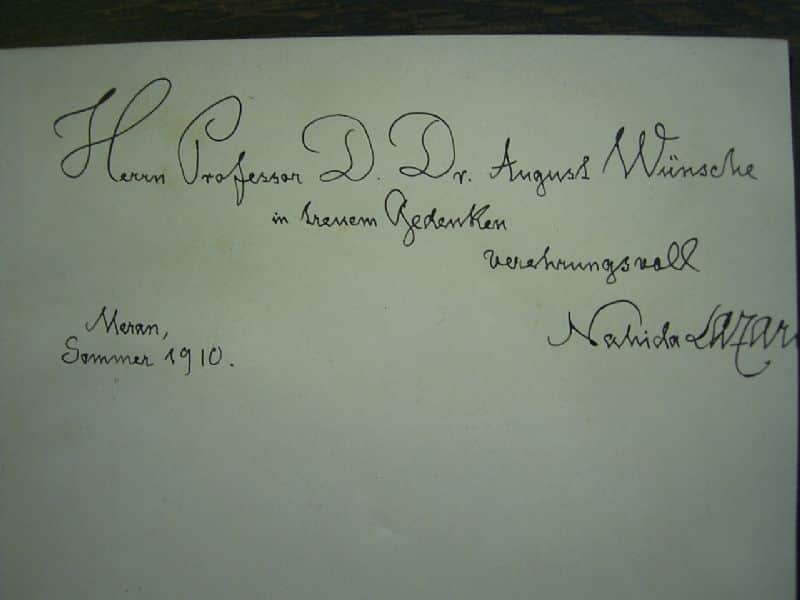 Herrn Professor D. Dr. August Wünsche
in treuem Gedenken
verehrungsvoll
Nahida Lazar
Meran,
Sommer 1910.